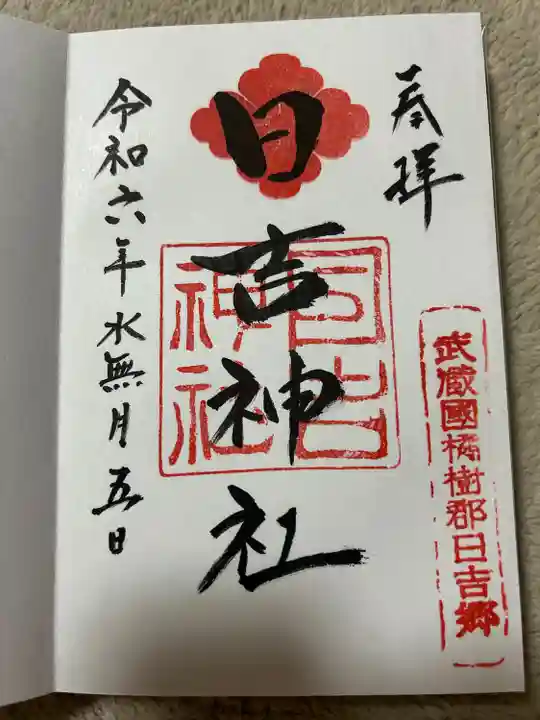 奉拝
武蔵國橘樹郡日吉郷
日吉神社
日吉神社
令和六年水無月五日